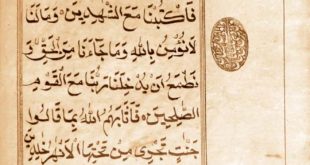 فَاكْتُبْنَا مَعَ الشّٰهِدِينَ وَمَالَنَا
لَا نُؤْمِنُ بِاللّٰهِ وَمَا جَآءَنَا مِنَ الْحَقِّ وَ
نَطْمَعُ اَنْ يُدْخِلَنَا رَبُّنَا مَعَ الْقَوْمِ
الصّٰلِحِينَ فَاَثَابَهُمُ اللّٰهُ بِمَا قَالُوا
جَنّٰتٍ تَجْرِى مِنْ تَحْتِهَا الْاَنْهٰرُ خٰلِدِينَ